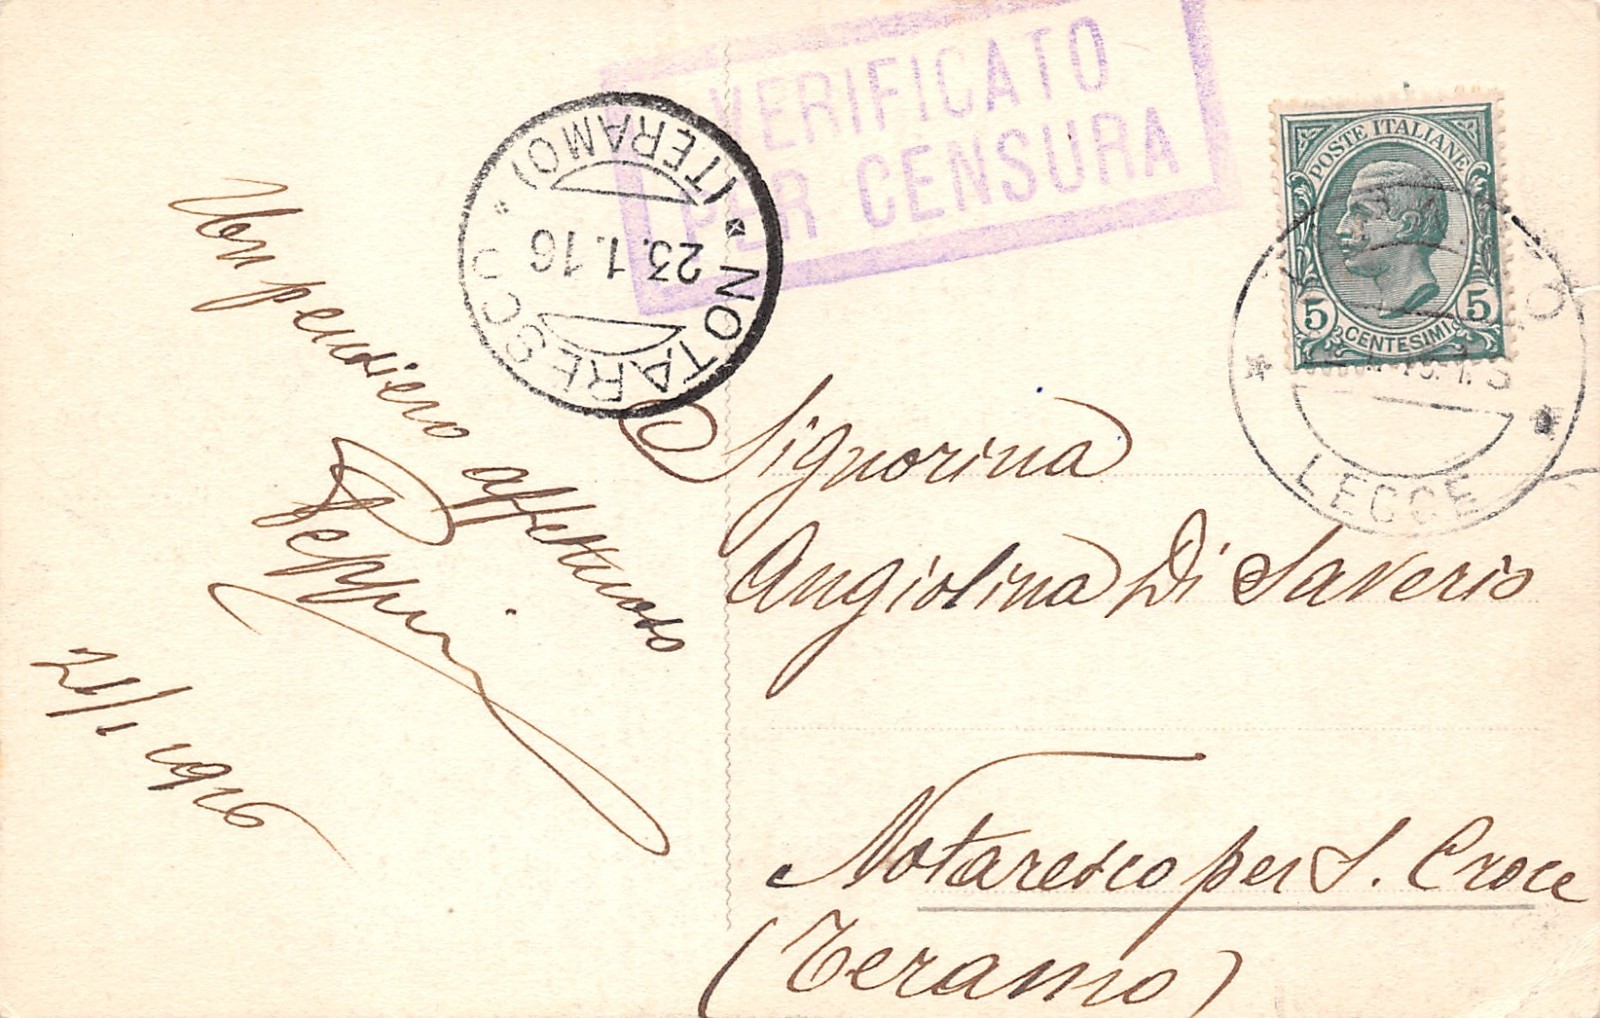 VERIFICATO
PER CENSURA
NOTARESCO
(TERAMO)
23.1.16
POSTE ITALIANE
5 5
CENTESIMI
LECCE
Un pensiero affettuoso
Peppino
21/1 1916
Signorina
Angiolina Di Saverio
Notaresco per S. Croce
(Teramo)